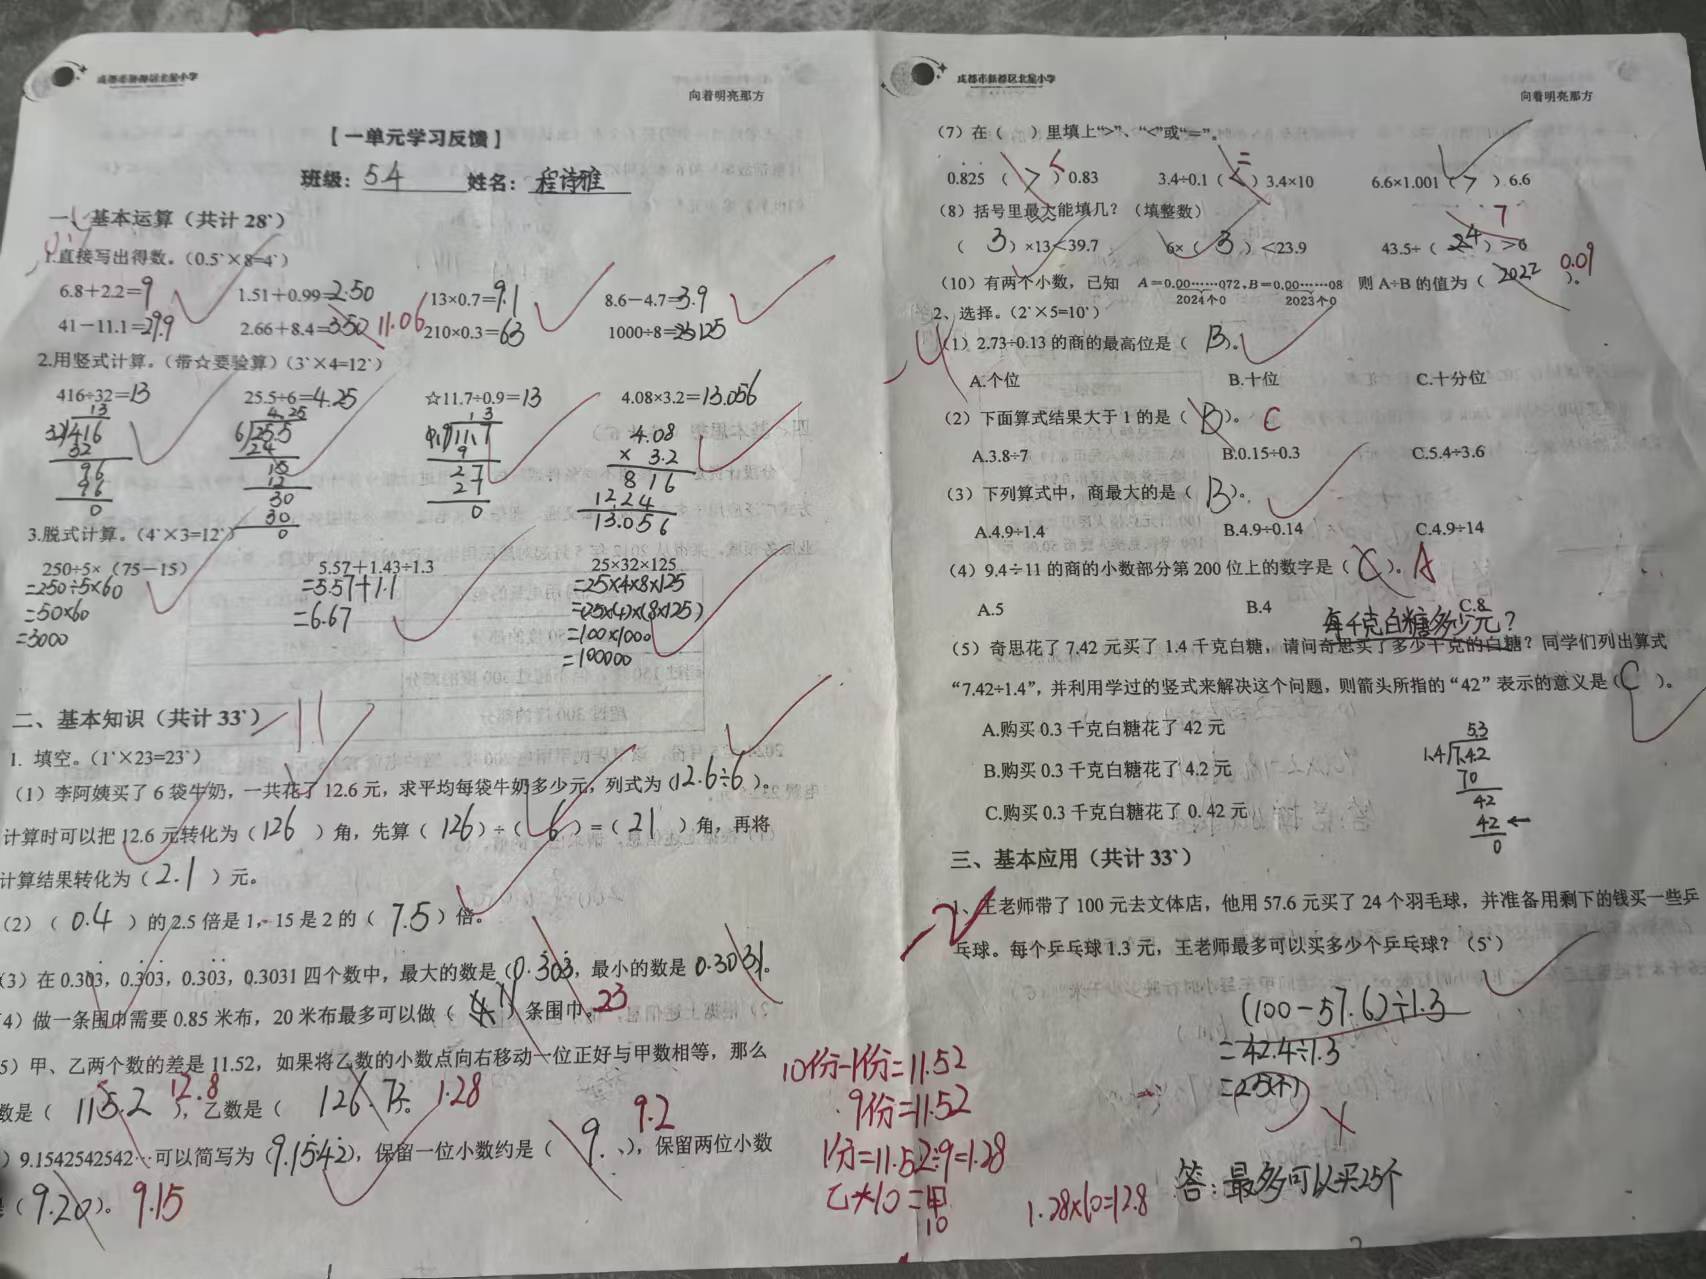 成都市新都区北星小学
向着明亮那方
【一单元学习反馈】
班级：5.4 姓名：程诗雅
一、基本运算（共计28`）
1.直接写出得数。（0.5`×8=4`）
6.8＋2.2=9 1.51＋0.99=2.50 13×0.7=9.1 8.6－4.7=3.9
41－11.1=29.9 2.66＋8.4=3.50 11.06 210×0.3=63 1000÷8=125
2.用竖式计算。（带☆要验算）（3`×4=12`）
416÷32=13 25.5÷6=4.25 ☆11.7÷0.9=13 4.08×3.2=13.056
13 4.25 13 4.08
32 416 6 25.5 0.9 11.7 × 3.2
32 24 9 816
96 15 27 1224
96 12 27 13.056
0 30 0
30
0
3.脱式计算。（4`×3=12`）
250÷5×（75－15） 5.57＋1.43÷1.3 25×32×125
=250÷5×60 =5.57+1.1 =25×4×8×125
=50×60 =6.67 =(25×4)×(8×125)
=3000 =100×1000
=100000
二、基本知识（共计33`） -11
1. 填空。（1`×23=23`）
（1）李阿姨买了6袋牛奶，一共花了12.6元，求平均每袋牛奶多少元，列式为（12.6÷6）。
计算时可以把12.6元转化为（126）角，先算（126）÷（6）=（21）角，再将
计算结果转化为（2.1）元。
（2）（0.4）的2.5倍是1，15是2的（7.5）倍。
（3）在0.303̇，0.3̇03̇，0.30̇3̇，0.3031四个数中，最大的数是（0.3̇03̇，最小的数是0.3031。
4）做一条围巾需要0.85米布，20米布最多可以做（ ）条围巾。23
5）甲、乙两个数的差是11.52，如果将乙数的小数点向右移动一位正好与甲数相等，那么
数是（115.2），12.8 乙数是（126.73。 1.28
）9.1542542542…可以简写为（9.15̇42̇），保留一位小数约是（9. ），9.2 保留两位小数
（9.20）。9.15
10份-1份=11.52
9份=11.52
1份=11.52÷9=1.28
乙*10=甲
10
1.28×10=12.8
成都市新都区北星小学
向着明亮那方
（7）在（ ）里填上“>”、“<”或“=”。
0.8̇25̇（>）< 0.83 3.4÷0.1（<）= 3.4×10 6.6×1.001（>）6.6
（8）括号里最大能填几？（填整数）
（3）×13<39.7 6×（3）<23.9 43.5÷（24）7 >6
（10）有两个小数，已知 A=0.00……072，B=0.00……08 则A÷B的值为（2022）。0.09
2024个0 2023个0
2、选择。（2`×5=10`） -4
（1）2.73÷0.13的商的最高位是（B）。
A.个位 B.十位 C.十分位
（2）下面算式结果大于1的是（B）。C
A.3.8÷7 B.0.15÷0.3 C.5.4÷3.6
（3）下列算式中，商最大的是（B）。
A.4.9÷1.4 B.4.9÷0.14 C.4.9÷14
（4）9.4÷11的商的小数部分第200位上的数字是（C）。A
A.5 B.4 C.8
每千克白糖多少元？
（5）奇思花了7.42元买了1.4千克白糖，请问奇思买了多少千克的白糖？同学们列出算式
“7.42÷1.4”，并利用学过的竖式来解决这个问题，则箭头所指的“42”表示的意义是（C）。
A.购买0.3千克白糖花了42元
B.购买0.3千克白糖花了4.2元
C.购买0.3千克白糖花了0.42元
5.3
1.4 7.42
70
42
42←
0
三、基本应用（共计33`）
1、王老师带了100元去文体店，他用57.6元买了24个羽毛球，并准备用剩下的钱买一些乒
乓球。每个乒乓球1.3元，王老师最多可以买多少个乒乓球？（5`）
(100－57.6)÷1.3
=42.4÷1.3
=25(个)
答：最多可以买25个